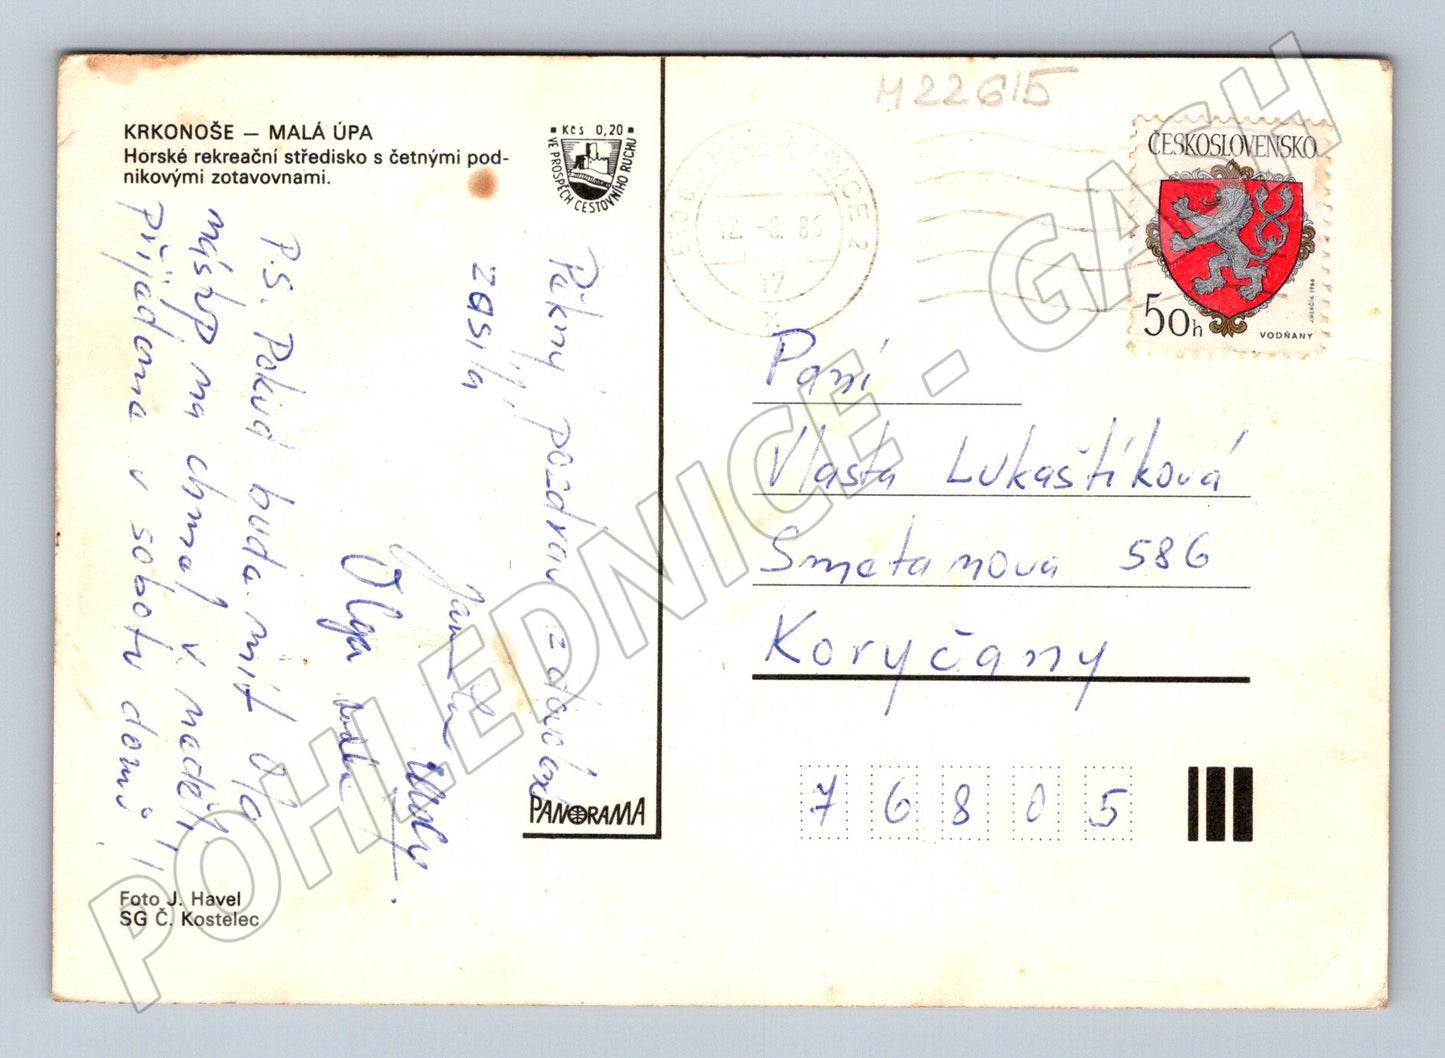 M22615
KRKONOŠE — MALÁ ÚPA
Horské rekreační středisko s četnými pod-
nikovými zotavovnami.
Kčs 0,20
VE PROSPĚCH CESTOVNÍHO RUCHU
PARDUBICE 2
12. -8. 86
17
ČESKOSLOVENSKO
50h
VODŇANY
Pěkný pozdrav z dovolené
zasílá
Olga
P.S. Pokud bude mít Olga
místo na chmel v neděli,
přijedeme v sobotu domů!!
PANORAMA
Foto J. Havel
SG Č. Kostelec
Paní
Vlasta Lukaštíková
Smetanova 586
Koryčany
76805
POHLEDNICE - GASH